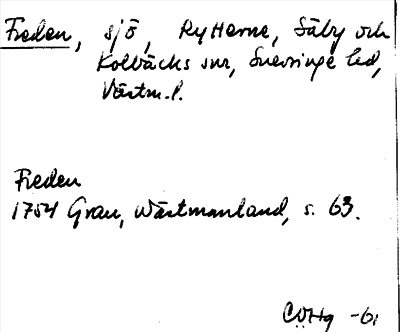 Freden, sjö, Rytterne, Säby och
Kolbäcks snr, Snevringe hd,
Västm.l.
Freden
1754 Grau, Wästmanland, s. 63.
COHg -61